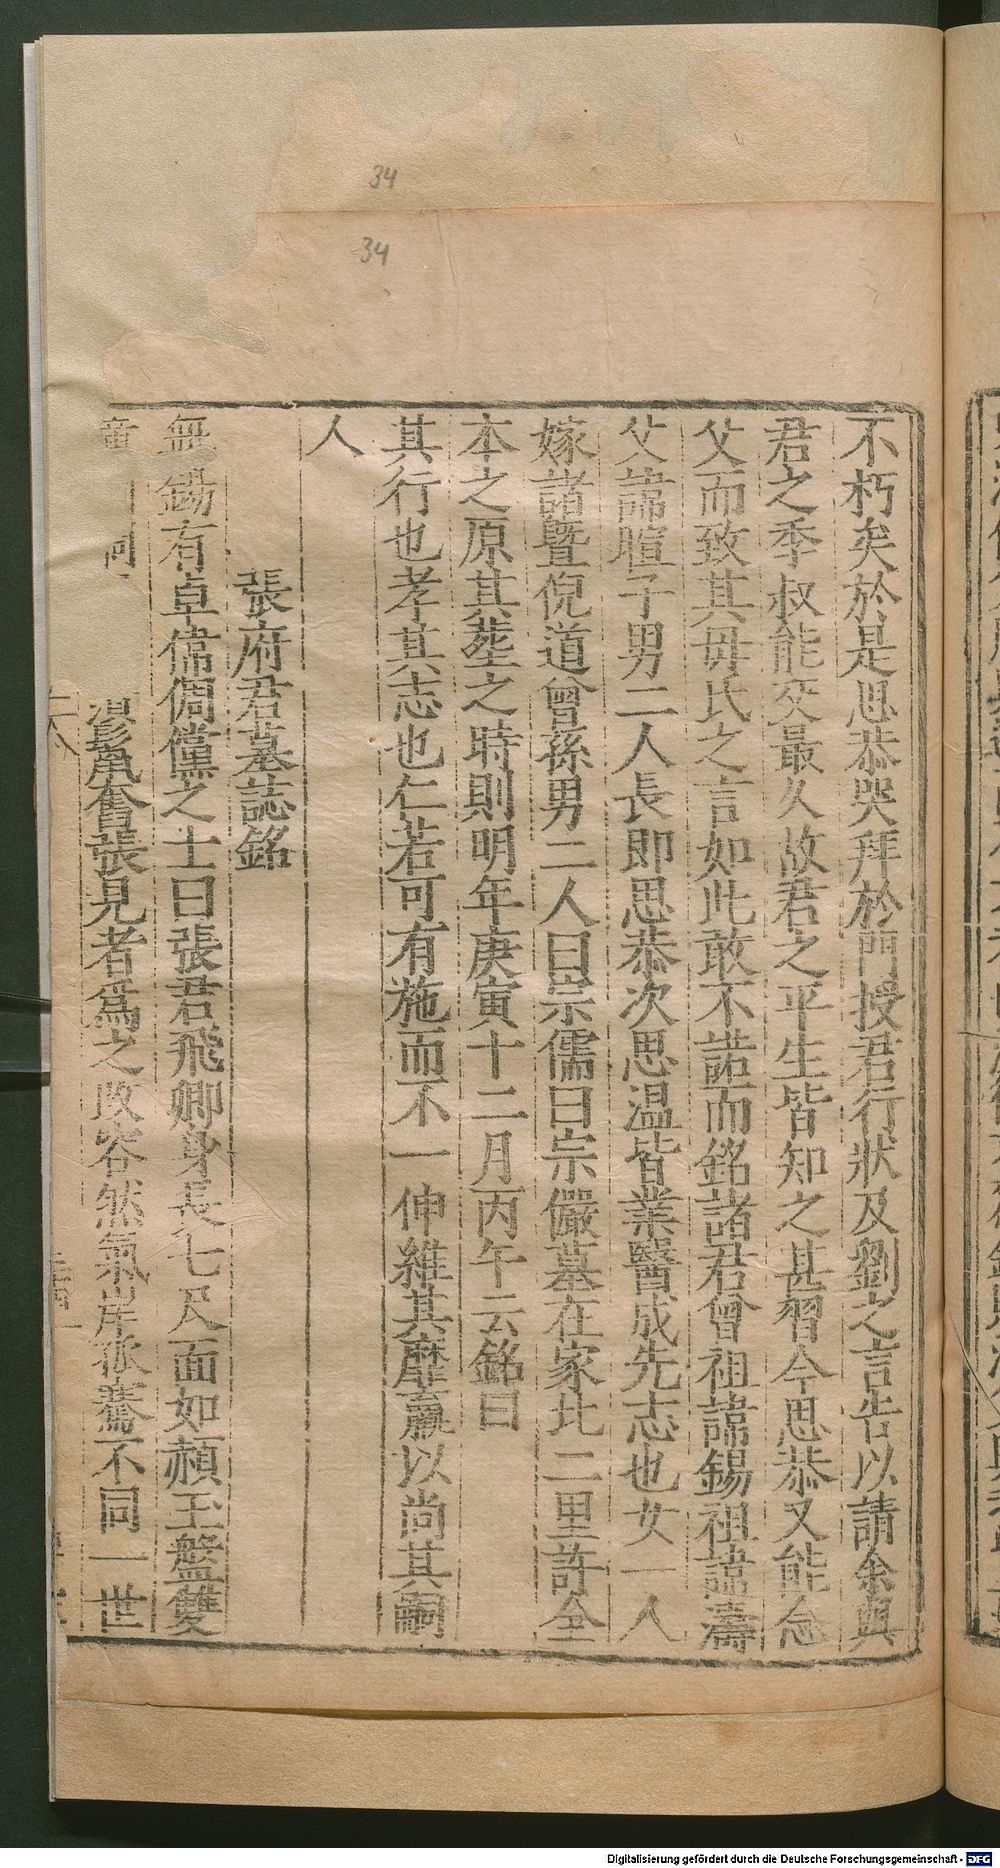 34
34
不朽矣於是思恭哭拜於門授君行狀及劉之言告以請余與
君之季叔能交最久故君之平生皆知之甚習今思恭又能念
父而致其母氏之言如此敢不諾而銘諸君曾祖諱錫祖諱濤
父諱暄子男二人長即思恭次思温皆業醫成先志也女一人
嫁諸暨倪道曾孫男二人曰宗儒曰宗儼墓在家北二里許全
本之原其塟之時則明年庚寅十二月丙午云銘曰
其行也孝其志也仁若可有施而不一伸維其靡贏以尚其嗣
人
張府君墓誌銘
無錫有卓偉倜儻之士曰張君飛卿身長七尺面如頳玉盤雙
奮張見者爲之改容然氣岸孤騫不同一世
Digitalisierung gefördert durch die Deutsche Forschungsgemeinschaft - DFG